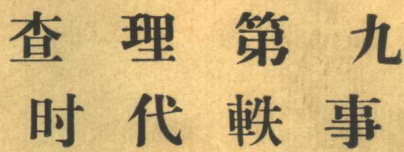 查理第九
时代軼事